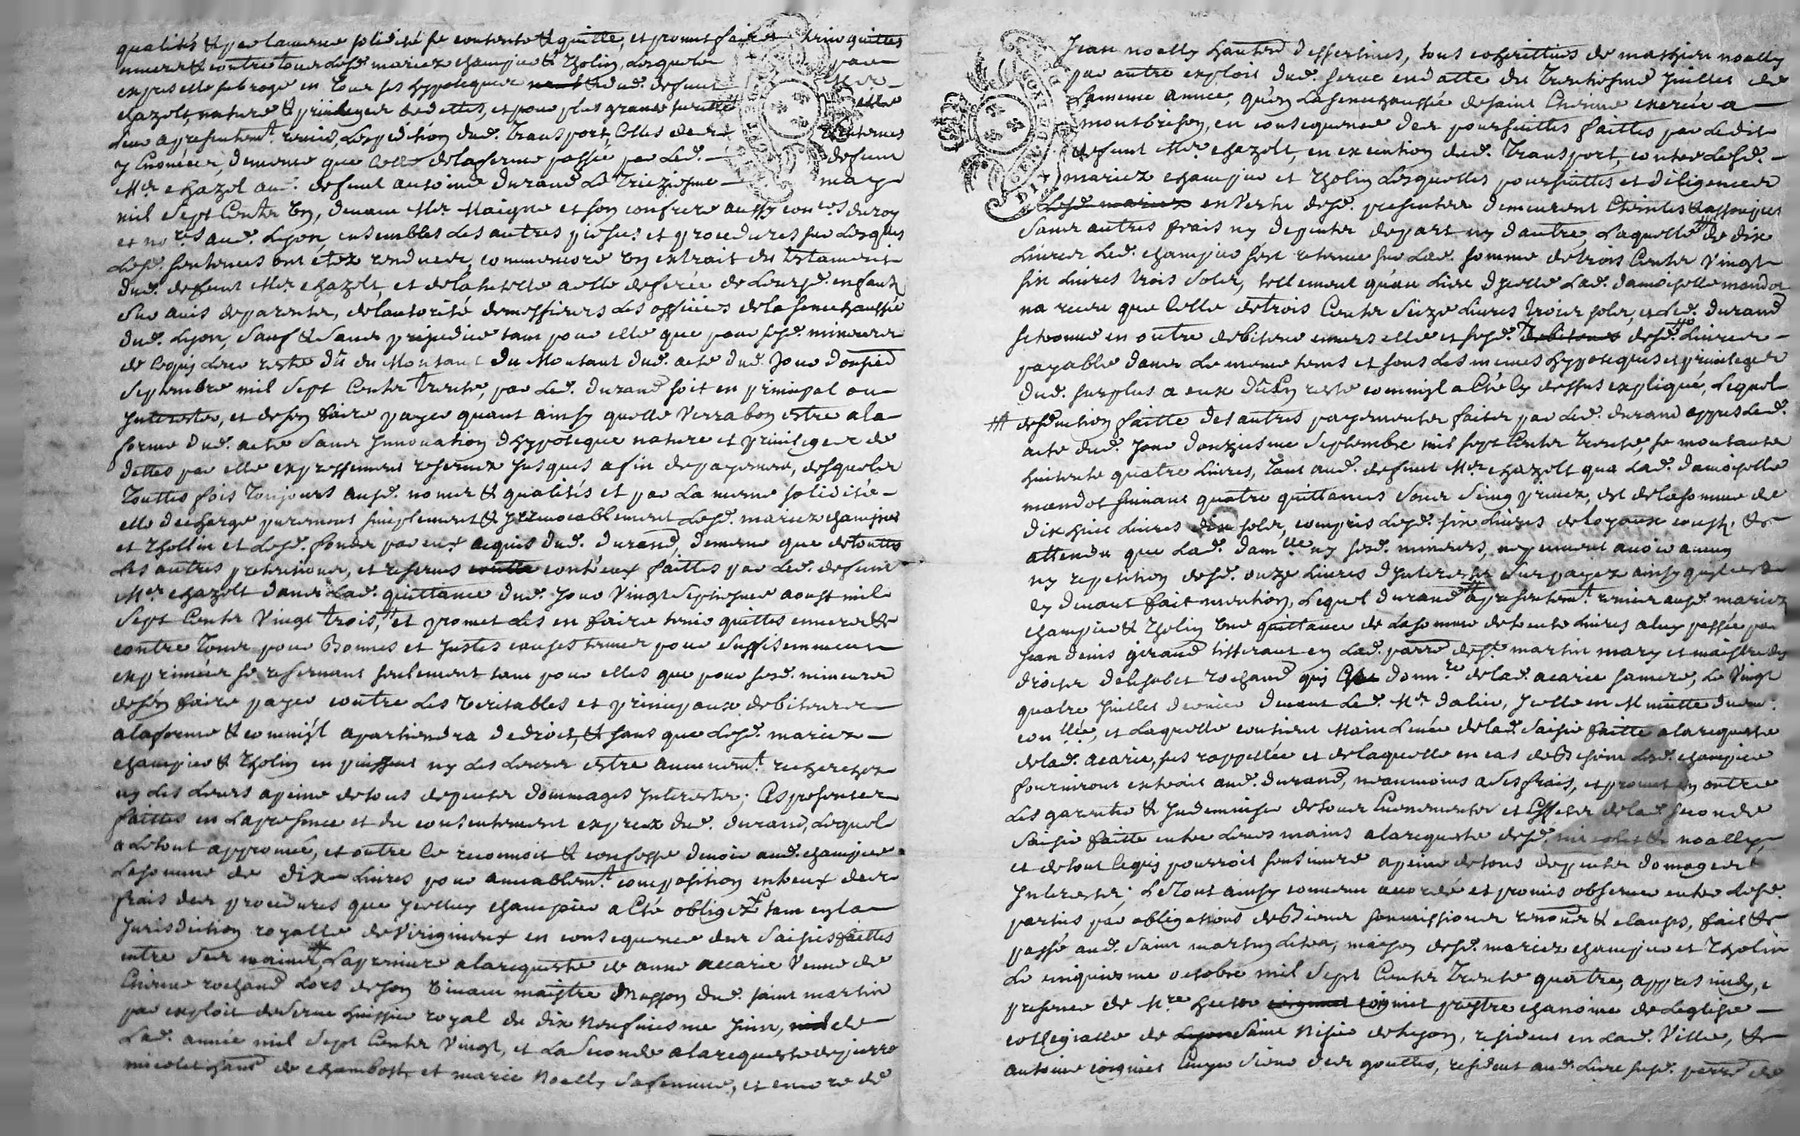 qualités & par la meme solidité se contente & quitte, et promet faire tenir quittes
envers & contre tous lesd. mariez champier & Tholin, lesquels
expres elle subroge en tous ses hyppoteques dud. defunt
chazolt, nature & privileges de dettes, et pour plus grande
leur a presentem.t remis l'expedition dud. Transport, Celles des
cy Enoncées, de meme que Celle de la ferme passée par led. defunt
M.er chazol aud. defunt antoine Durand Le Treizieme may
mil Sept Cents devant M.er Maigre et son confrere aussy con.ers du roy
et no.res aud. Lyon, ensembles Les autres pieces et procedures sur Lesques
Lesd. sentences ont eté rendues, comme encore un extrait du testament
dud. defunt M.er chazolt, et de la tutelle a elle deferée de Leursd. enfants
Sur avis de parents, de l'autorité de messieurs Les officiers de la senechaussée
dud. Lyon, Sauf & Sans prejudice tant pour elle que pour sesd. mineurs
de ce qui Leur reste dû du Montant du Montant dud. acte dud. Jour onzieme
Septembre mil Sept Cents Trente, par Led. Durand soit en principal ou
Interests, et de s'en faire payer quant ainsy quelle verra bon estre a la
forme dud. acte Sans Innovation d'hyppoteque nature et privileges de
dettes par elle expressement reservez Jusques a fin de payement, desquels
Touttes fois Toujours ausd. noms & qualités et par La meme solidité
elle decharge purement simplement & irrevocablement Lesd. mariez champier
et Thollin et Lesd. fonds par eux acquis dud. Durand, de meme que de touttes
Les autres pretentions, et reserves contre eux faittes par Led. defunt
M.er chazolt dans Lad. quittance dud. Jour Vingt Septieme aoust mil
Sept Cents Vingt trois, et promet Les en faire tenir quittes envers &
contre Tous pour Bonnes et Justes causes
exprimées se reservant seulement tant pour elles que pour sesd. mineurs
de s'en faire payer contre Les veritables et principaux debiteurs
a la forme & comm'il apartiendra de droit, & sans que Lesd. mariez
champier & Tholin en puissent ny Les Leurs estre aucunem.t recherchez
ny Les Leurs a peine de tous depens dommages Interests; Ces presentes
faittes en La presence et du consentement exprez dud. Durand, Lequel
a Le tout approuvé, et outre ce reconnoit & confesse devoir aud. champier
La somme de dix Livres pour amiablem.t composition entreux des
frais des procedures que Jcelluy champier a Eté obligez tant en la
Jurisdiction royalle de Virigneux en consequence des Saisies faittes
entre Ses mains, La premiere a la requeste de anne accarie Veuve de
Etienne rochand Lors de son vivant maistre masson dud. saint martin
par exploit de Serve huissier royal du dix neufviesme Juin,
Lad. année mil Sept Cents Vingt, et La Seconde a la requeste de pierre
nicolet de chambost et marie Noally sa femme, et encore de
Jean noally d'essertines, tous coheritiers de mathieu noally
par autre exploit dud. Serve en datte du Trentiesme Juillet de
La meme année, qu'en La senechaussée de saint Etienne exercée a
montbrison, en consequence des poursuittes faittes par Ledit
defunt M.er chazolt, en execution dud. Transport, contre Lesd.
mariez champier et Tholin Lesquelles poursuittes et diligences
en Vertu desd. presentes demeurent Eteintes & assoupies
Sans autres frais ny depens de part ny d'autre, Laquelle de dix
Livres Led. champier s'est retenue sur Lad. somme de trois Cents Vingt
six Livres trois Sols, tellement qu'au Lieu d'icelle Lad. damoiselle mandot
na receu que Celle de trois Cents Seize Livres trois sols, et Led. Durand
se trouve en outre debiteur envers elle et sesd. desd. Livres
payable dans Le meme tems et sous Les memes hyppoteques et privileges
dud. surplus a eux dû de reste comm'il a Eté Cy dessus expliqué, Lequel
deduction faitte des autres payements faits par Led. Durand appres Led.
acte dud. Jour d'onziesme Septembre mil sept Cents Trente, se montants
huitente quatre Livres, Tant aud. defunt M.er chazolt qua Lad. damoiselle
mandot suivant quatre quittances sous Seing privez, est de la somme de
dix huit Livres dix sols, compris Lesd. six Livres de loyaux cousts &
attendu que Lad. dam.lle ny sesd. mineurs, ne peuvent avoir aucun
ny repetition desd. onze Livres d'Interests Surpayez ainsy quil est
cy devant fait mention, Lequel durand a presentem.t remis ausd. mariez
champier & Tholin une quittance de La somme de trente Livres a luy passée par
Jean denis girand tisserant en Lad. parr.e dud. S.t martin mary et maistre des
droits d'elisabet rochand qui Etoit donn.re de lad. acarie sa mere, Le Vingt
quatre Juillet dernier devant Led. M.er dalin, Jcelle en Minutte
con.llée, et Laquelle contient Main Levée de lad. Saisie faitte a la requeste
de lad. acarie, sus rappellée et de laquelle en cas de Besoin Lesd. champier
fourniront extrait aud. Durand, neanmoins a ses frais, et promet en outre
Les garentir & Indemniser de tous Evenements et Effets de lad. seconde
Saisie faitte entre Leurs mains a la requeste desd. nicolet & noally
et de tout ce qui pourroit s'ensuivre a peine de tous depens domages &
Interests; Le Tout ainsy convenu accordé et promis observer entre Lesd.
parties par obligations de Biens soumissions renonc. & clauses, fait &
passé aud. Saint martin Lestra, maison desd. mariez champier et Tholin
Le cinquiesme octobre mil Sept Cents Trente quatre, appres midy, e
presence de M.re hector coignet prestre chanoine de Leglise
collegialle de Saint Nisier de Lyon, resident en Lad. Ville, &
antoine coignet Ecuyer Sieur des gouttes, resident aud. Lieu susd. parr.e de